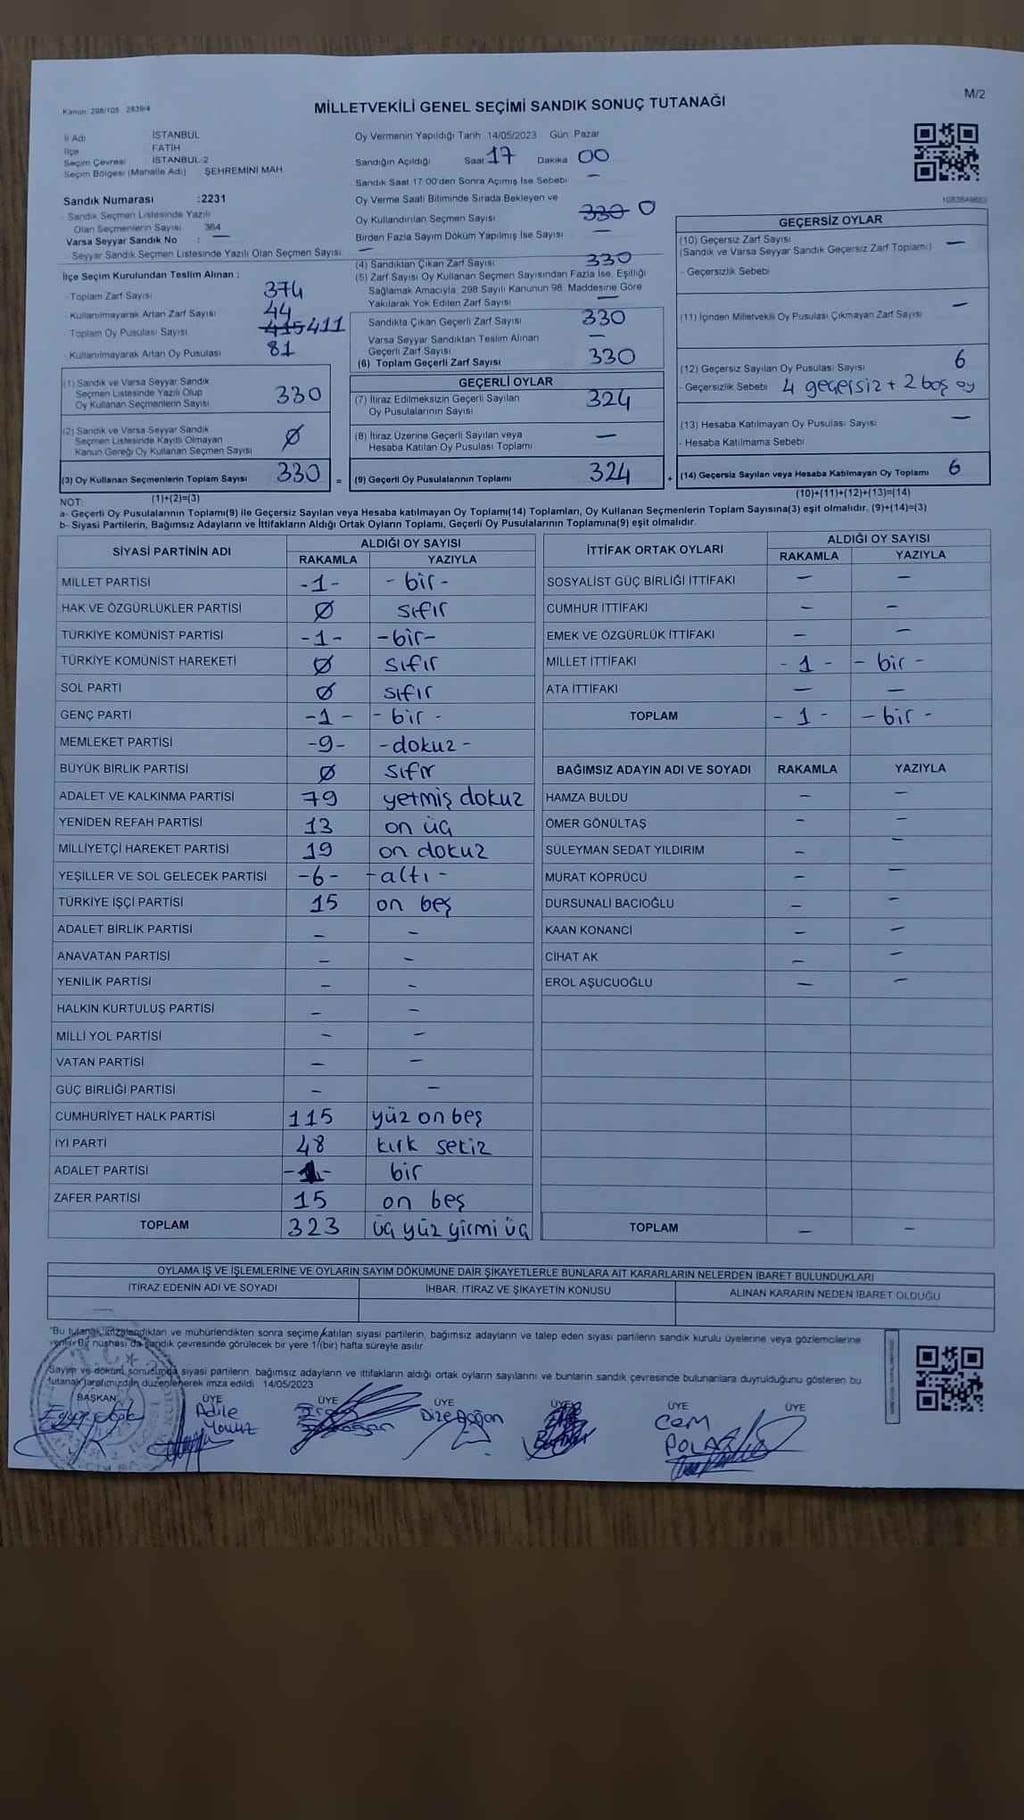 Kanun: 298/105 2839/4
MİLLETVEKİLİ GENEL SEÇİMİ SANDIK SONUÇ TUTANAĞI
M/2
İl Adı İSTANBUL
İlçe FATİH
Seçim Çevresi İSTANBUL-2
Seçim Bölgesi (Mahalle Adı) ŞEHREMİNİ MAH
Sandık Numarası :2231
Sandık Seçmen Listesinde Yazılı
Olan Seçmenlerin Sayısı 364
Varsa Seyyar Sandık No : —
Seyyar Sandık Seçmen Listesinde Yazılı Olan Seçmen Sayısı —
İlçe Seçim Kurulundan Teslim Alınan :
- Toplam Zarf Sayısı 374
- Kullanılmayarak Artan Zarf Sayısı 44
- Toplam Oy Pusulası Sayısı 415 411
- Kullanılmayarak Artan Oy Pusulası 81
(1) Sandık ve Varsa Seyyar Sandık
Seçmen Listesinde Yazılı Olup
Oy Kullanan Seçmenlerin Sayısı 330
(2) Sandık ve Varsa Seyyar Sandık
Seçmen Listesinde Kayıtlı Olmayan
Kanun Gereği Oy Kullanan Seçmen Sayısı Ø
(3) Oy Kullanan Seçmenlerin Toplam Sayısı 330 =
(1)+(2)=(3)
Oy Vermenin Yapıldığı Tarih 14/05/2023 Gün Pazar
Sandığın Açıldığı Saat 17 Dakika 00
Sandık Saat 17:00'den Sonra Açılmış İse Sebebi —
Oy Verme Saati Bitiminde Sırada Bekleyen ve
Oy Kullandırılan Seçmen Sayısı 330 0
Birden Fazla Sayım Döküm Yapılmış İse Sayısı —
(4) Sandıktan Çıkan Zarf Sayısı 330
(5) Zarf Sayısı Oy Kullanan Seçmen Sayısından Fazla İse, Eşitliği
Sağlamak Amacıyla, 298 Sayılı Kanunun 98. Maddesine Göre
Yakılarak Yok Edilen Zarf Sayısı —
Sandıkta Çıkan Geçerli Zarf Sayısı 330
Varsa Seyyar Sandıktan Teslim Alınan
Geçerli Zarf Sayısı —
(6) Toplam Geçerli Zarf Sayısı 330
GEÇERLİ OYLAR
(7) İtiraz Edilmeksizin Geçerli Sayılan
Oy Pusulalarının Sayısı 324
(8) İtiraz Üzerine Geçerli Sayılan veya
Hesaba Katılan Oy Pusulası Toplamı —
(9) Geçerli Oy Pusulalarının Toplamı 324 +
1083849883
GEÇERSİZ OYLAR
(10) Geçersiz Zarf Sayısı
(Sandık ve Varsa Seyyar Sandık Geçersiz Zarf Toplamı) —
- Geçersizlik Sebebi
(11) İçinden Milletvekili Oy Pusulası Çıkmayan Zarf Sayısı —
(12) Geçersiz Sayılan Oy Pusulası Sayısı 6
- Geçersizlik Sebebi 4 geçersiz + 2 boş oy
(13) Hesaba Katılmayan Oy Pusulası Sayısı —
- Hesaba Katılmama Sebebi
(14) Geçersiz Sayılan veya Hesaba Katılmayan Oy Toplamı 6
(10)+(11)+(12)+(13)=(14)
NOT:
a- Geçerli Oy Pusulalarının Toplamı(9) ile Geçersiz Sayılan veya Hesaba katılmayan Oy Toplamı(14) Toplamları, Oy Kullanan Seçmenlerin Toplam Sayısına(3) eşit olmalıdır. (9)+(14)=(3)
b- Siyasi Partilerin, Bağımsız Adayların ve İttifakların Aldığı Ortak Oyların Toplamı, Geçerli Oy Pusulalarının Toplamına(9) eşit olmalıdır.
SİYASİ PARTİNİN ADI ALDIĞI OY SAYISI
RAKAMLA YAZIYLA
MİLLET PARTİSİ -1- - bir -
HAK VE ÖZGÜRLÜKLER PARTİSİ Ø sıfır
TÜRKİYE KOMÜNİST PARTİSİ -1- -bir-
TÜRKİYE KOMÜNİST HAREKETİ Ø sıfır
SOL PARTİ Ø sıfır
GENÇ PARTİ -1- - bir -
MEMLEKET PARTİSİ -9- -dokuz-
BÜYÜK BİRLİK PARTİSİ Ø sıfır
ADALET VE KALKINMA PARTİSİ 79 yetmiş dokuz
YENİDEN REFAH PARTİSİ 13 on üç
MİLLİYETÇİ HAREKET PARTİSİ 19 on dokuz
YEŞİLLER VE SOL GELECEK PARTİSİ -6- -altı-
TÜRKİYE İŞÇİ PARTİSİ 15 on beş
ADALET BİRLİK PARTİSİ — —
ANAVATAN PARTİSİ — —
YENİLİK PARTİSİ — —
HALKIN KURTULUŞ PARTİSİ — —
MİLLİ YOL PARTİSİ — —
VATAN PARTİSİ — —
GÜÇ BİRLİĞİ PARTİSİ — —
CUMHURİYET HALK PARTİSİ 115 yüz on beş
İYİ PARTİ 48 kırk sekiz
ADALET PARTİSİ -1- bir
ZAFER PARTİSİ 15 on beş
TOPLAM 323 üç yüz yirmi üç
İTTİFAK ORTAK OYLARI ALDIĞI OY SAYISI
RAKAMLA YAZIYLA
SOSYALİST GÜÇ BİRLİĞİ İTTİFAKI — —
CUMHUR İTTİFAKI — —
EMEK VE ÖZGÜRLÜK İTTİFAKI — —
MİLLET İTTİFAKI - 1 - - bir -
ATA İTTİFAKI — —
TOPLAM - 1 - - bir -
BAĞIMSIZ ADAYIN ADI VE SOYADI RAKAMLA YAZIYLA
HAMZA BULDU — —
ÖMER GÖNÜLTAŞ — —
SÜLEYMAN SEDAT YILDIRIM — —
MURAT KÖPRÜCÜ — —
DURSUNALİ BACIOĞLU — —
KAAN KONANCİ — —
CİHAT AK — —
EROL AŞUCUOĞLU — —
TOPLAM — —
OYLAMA İŞ VE İŞLEMLERİNE VE OYLARIN SAYIM DÖKÜMÜNE DAİR ŞİKAYETLERLE BUNLARA AİT KARARLARIN NELERDEN İBARET BULUNDUKLARI
İTİRAZ EDENİN ADI VE SOYADI İHBAR, İTİRAZ VE ŞİKAYETİN KONUSU ALINAN KARARIN NEDEN İBARET OLDUĞU
—
"Bu tutanak imzalandıktan ve mühürlendikten sonra seçime katılan siyasi partilerin, bağımsız adayların ve talep eden siyasi partilerin sandık kurulu üyelerine veya gözlemcilerine
verilir. Bir nüshası da sandık çevresinde görülecek bir yere 1/(bir) hafta süreyle asılır.
Sayım ve döküm sonucunda siyasi partilerin, bağımsız adayların ve ittifakların aldığı ortak oyların sayılarını ve bunların sandık çevresinde bulunanlara duyrulduğunu gösteren bu
tutanak tarafımızdan düzenlenerek imza edildi. 14/05/2023
BAŞKAN ÜYE ÜYE ÜYE ÜYE ÜYE ÜYE
Adile
Yavuz
Cem
POLAT